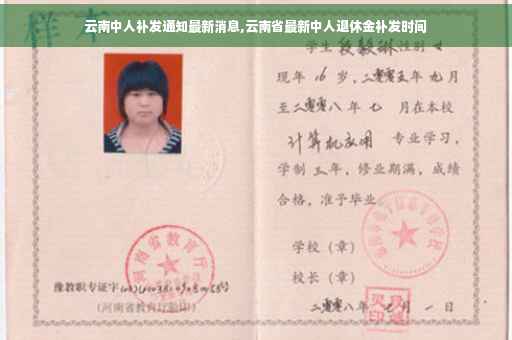 云南中人补发通知最新消息,云南省最新中人退休金补发时间
样本
学生 段毅琳 性别 女
现年 16 岁，二零零五年 九月
至二零零八年 七 月在本校
计算机应用 专业学习，
学制 三年，修业期满，成绩
合格，准予毕业
学校（章）
校长（章）
河南省教育厅
豫教职专证字
(河南省教育厅验印)
二零零八年 月 一 日